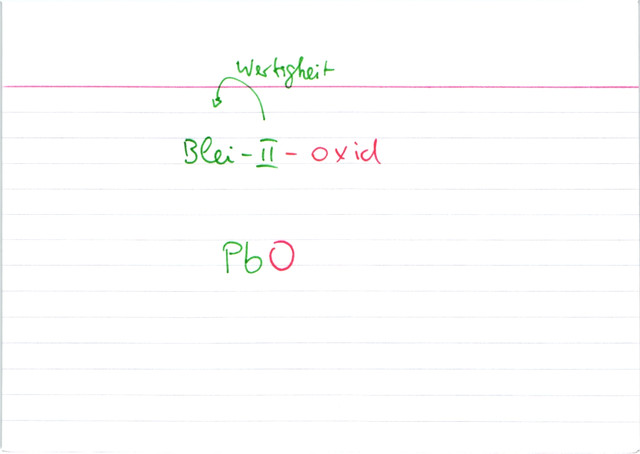 Wertigkeit
Blei-II-oxid
PbO